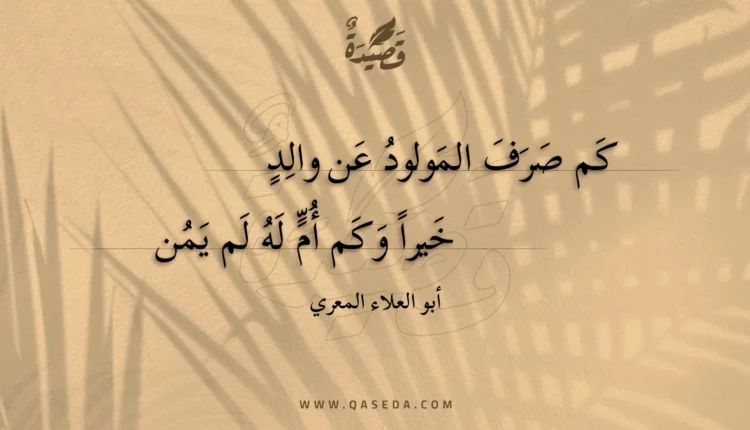 قَصِيدَةٌ
كَم صَرَفَ المَولودُ عَن والِدٍ
خَيراً وَكَم أُمٍّ لَهُ لَم يَمُن
أبو العلاء المعري
WWW.QASEDA.COM